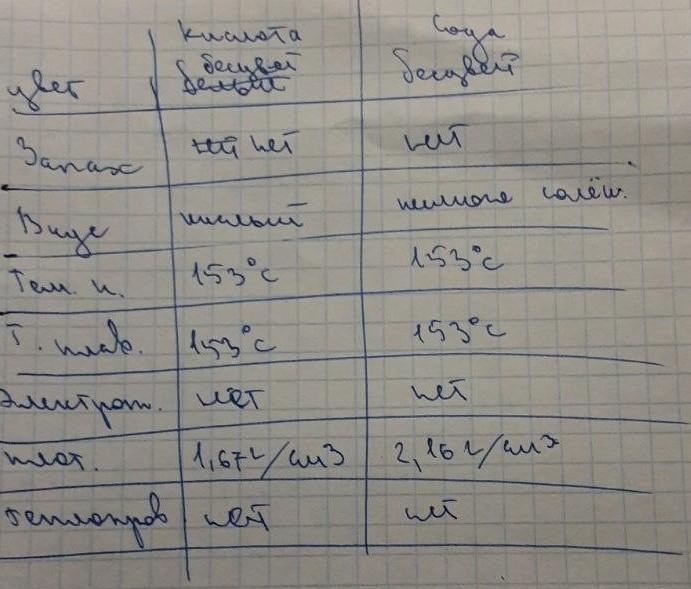 кислота сода
цвет бесцвет бесцвет
белый
Запах нет нет
Вкус кислый немного солён.
Тем. к. 153°с 153°с
Т. плав. 153°с 153°с
электроп. нет нет
плот. 1,67 г/см3 2,16 г/см3
теплопров нет нет